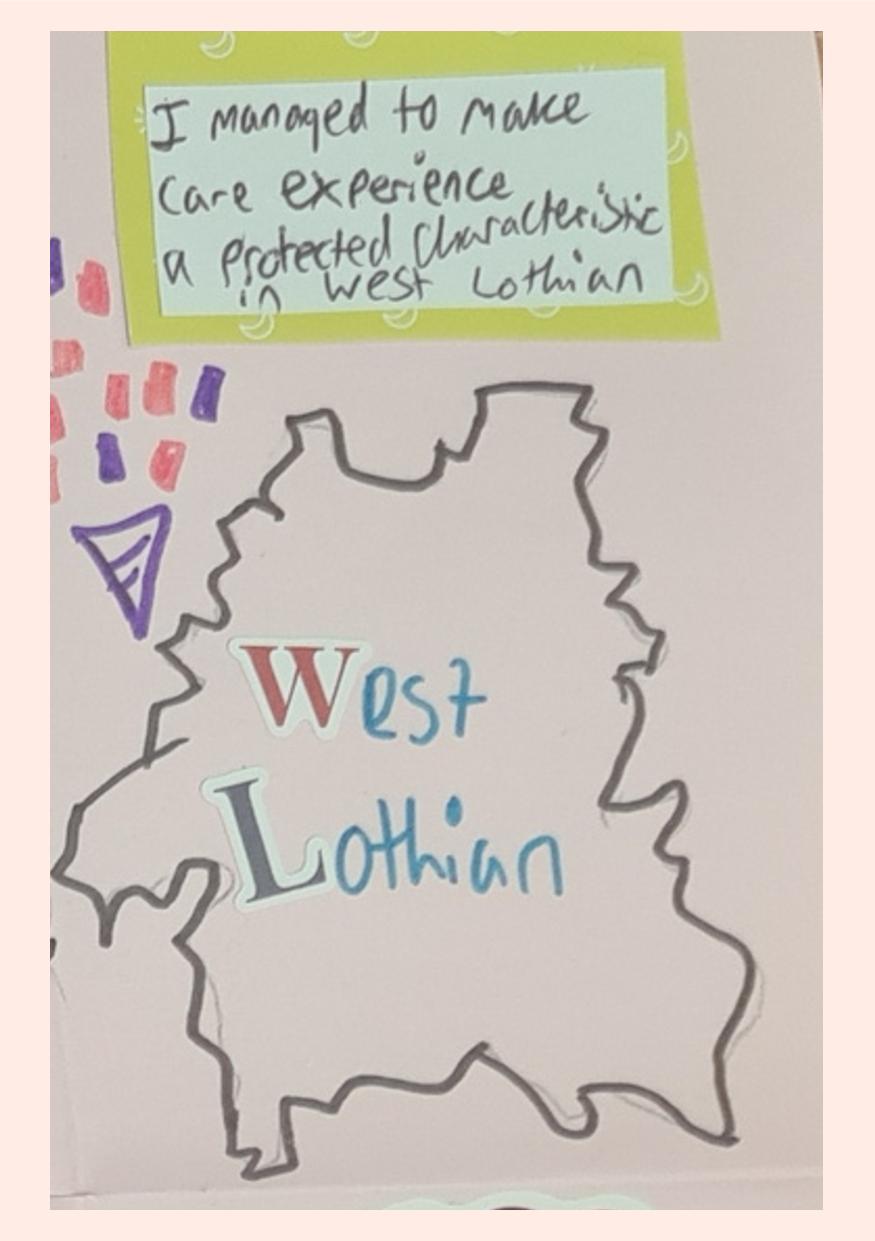 I managed to make
care experience
a protected characteristic
in west Lothian
West
Lothian